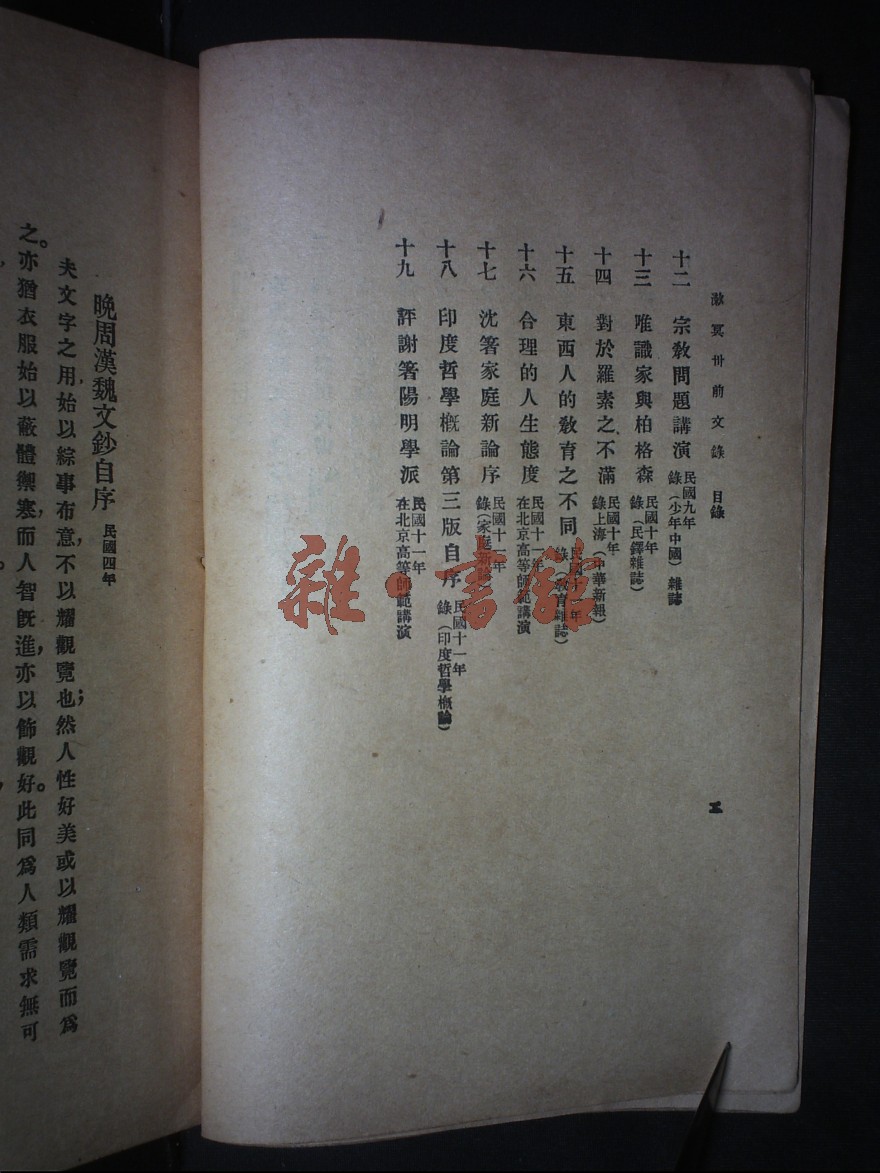 漱冥卅前文錄 目錄
十二 宗教問題講演 民國九年 錄(少年中國)雜誌
十三 唯識家與柏格森 民國十年 錄(民鐸雜誌)
十四 對於羅素之不滿 民國十年 錄上海(中華新報)
十五 東西人的教育之不同 民國十一年 錄(教育雜誌)
十六 合理的人生態度 民國十一年 在北京高等師範講演
十七 沈箸家庭新論序 民國十一年 錄(家庭新論)
十八 印度哲學概論第三版自序 民國十一年 錄(印度哲學概論)
十九 評謝箸陽明學派 民國十一年 在北京高等師範講演
晚周漢魏文鈔自序 民國四年
夫文字之用,始以綜事布意,不以耀觀覽也;然人性好美,或以耀觀覽而爲
之。亦猶衣服始以蔽體禦寒,而人智旣進,亦以飾觀好。此同爲人類需求無可
雜書館